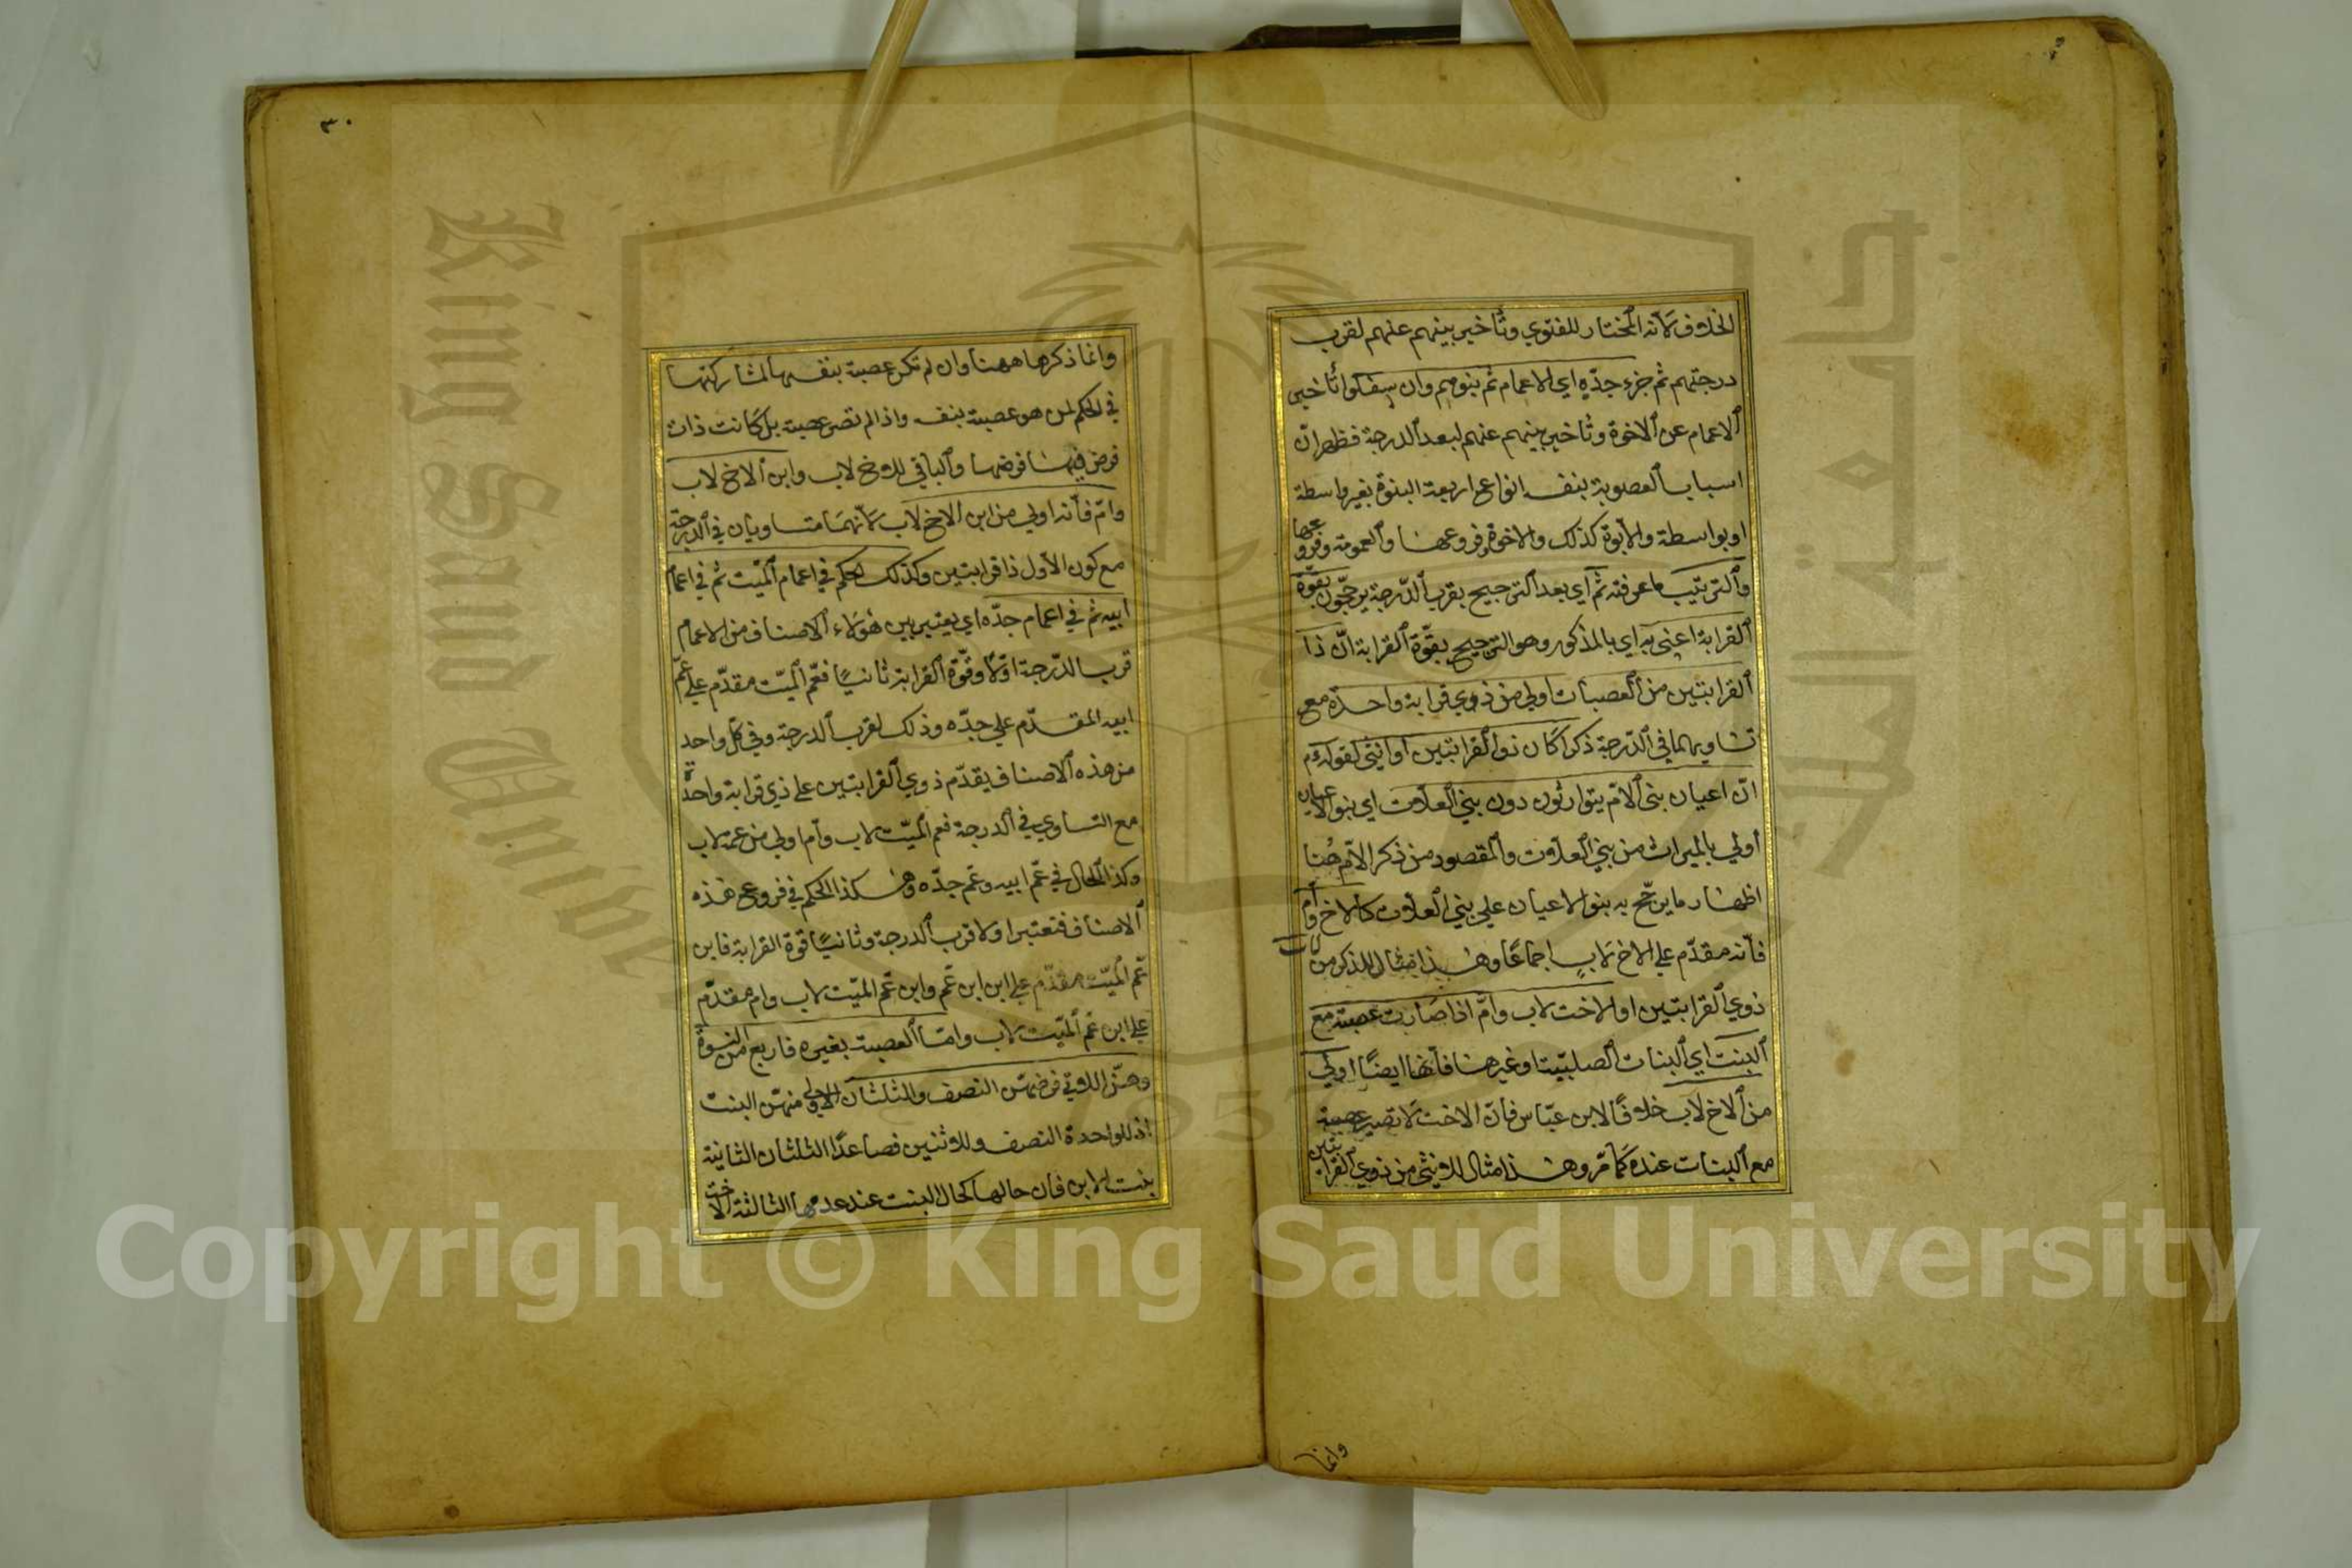 الخلاف لأنه المختار للفتوي وتأخير بينهم عنهم لقرب
درجتهم ثم جزء جدّه اي الاعمام ثم بنوهم وان سفلوا تأخير
الاعمام عن الاخوة وتأخير بينهم عنهم لبعد الدرجة فظهر انّ
اسباب العصوبة بنفسه انواع اربعة البنوة بغير واسطة
او بواسطة والابوة كذلك والاخوة وفروعها والعمومة وفروعها
والترتيب ما عرفته ثم اي بعد الترجيح بقرب الدّرجة يرجّحون بقوّة
القرابة اعني به اي بالمذكور وهو الترجيح بقوّة القرابة انّ ذا
القرابتين من العصبات اولي من ذوي قرابة واحدة مع
تساويهما في الدّرجة ذكرا كان ذو القرابتين او انثي لقوله عم
انّ اعيان بني الامّ يتوارثون دون بني العلات اي بنو الاعيان
أولي بالميراث من بني العلات والمقصود من ذكر الامّ هنا
اظهار ما يرجّح به بنو الاعيان علي بني العلات كالاخ لاب وأم
فأنه مقدّم علي الاخ لابٍ اجماعًا وهذا مثال للذكر من
ذوي القرابتين او الاخت لاب وأمّ اذا صارت عصبة مع
البنت اي البنات الصلبيّة او غيرها فأنّها ايضًا اولي
من الاخ لاب خلافًا لابن عبّاس فانّ الاخت لا تصير عصبة
مع البنات عنده كما مّر وهذا مثال للانثي من ذوي القرابتين
وانما
٣٠
وانما ذكرها ههنا وان لم تكن عصبة بنفسها لمشاركتها
في الحكم لمن هو عصبة بنفسه واذا لم تصر عصبة بل كانت ذات
فرض فيها فرضها والباقي للاخ لاب وابن الاخ لاب
وامّ فأنه اولي من ابن الاخ لاب لأنهما متساويان في الدرجة
مع كون الأول ذا قرابتين وكذلك الحكم في اعمام الميّت ثم في اعمام
ابيه ثم في اعمام جدّه اي يعتبر بين هؤلاء الاصناف من الاعمام
قرب الدّرجة اوّلا وقوّة القرابة ثانيًا فعّم الميّت مقدّم علي عّم
ابيه المقدّم علي جدّه وذلك لقرب الدرجة وفي كلّ واحد
من هذه الاصناف يقدّم ذوي القرابتين علي ذي قرابة واحدة
مع التساوي في الدرجة فعم الميّت لاب وأم اولي من عمه لاب
وكذا الحال في عّم ابيه وعّم جدّه وهكذا الحكم في فروع هذه
الاصناف فتعتبر اولا قرب الدرجة وثانيًا قوة القرابة فابن
عّم الميّت مقدّم علي ابن ابن عّم وابن عّم الميّت لاب وام مقدّم
علي ابن عّم الميّت لاب وامّا العصبة بغيره فاربع من النسوة
وهنّ اللاتي فرضهنّ النصف والثلثان الاولي منهنّ البنت
اذ للواحدة النصف وللاثنين فصاعدًا الثلثان الثانية
بنت الابن فان حالها كحال البنت عند عدمها الثالثة الاخت
Copyright © King Saud University
King Saud University
جامعة الملك
1957